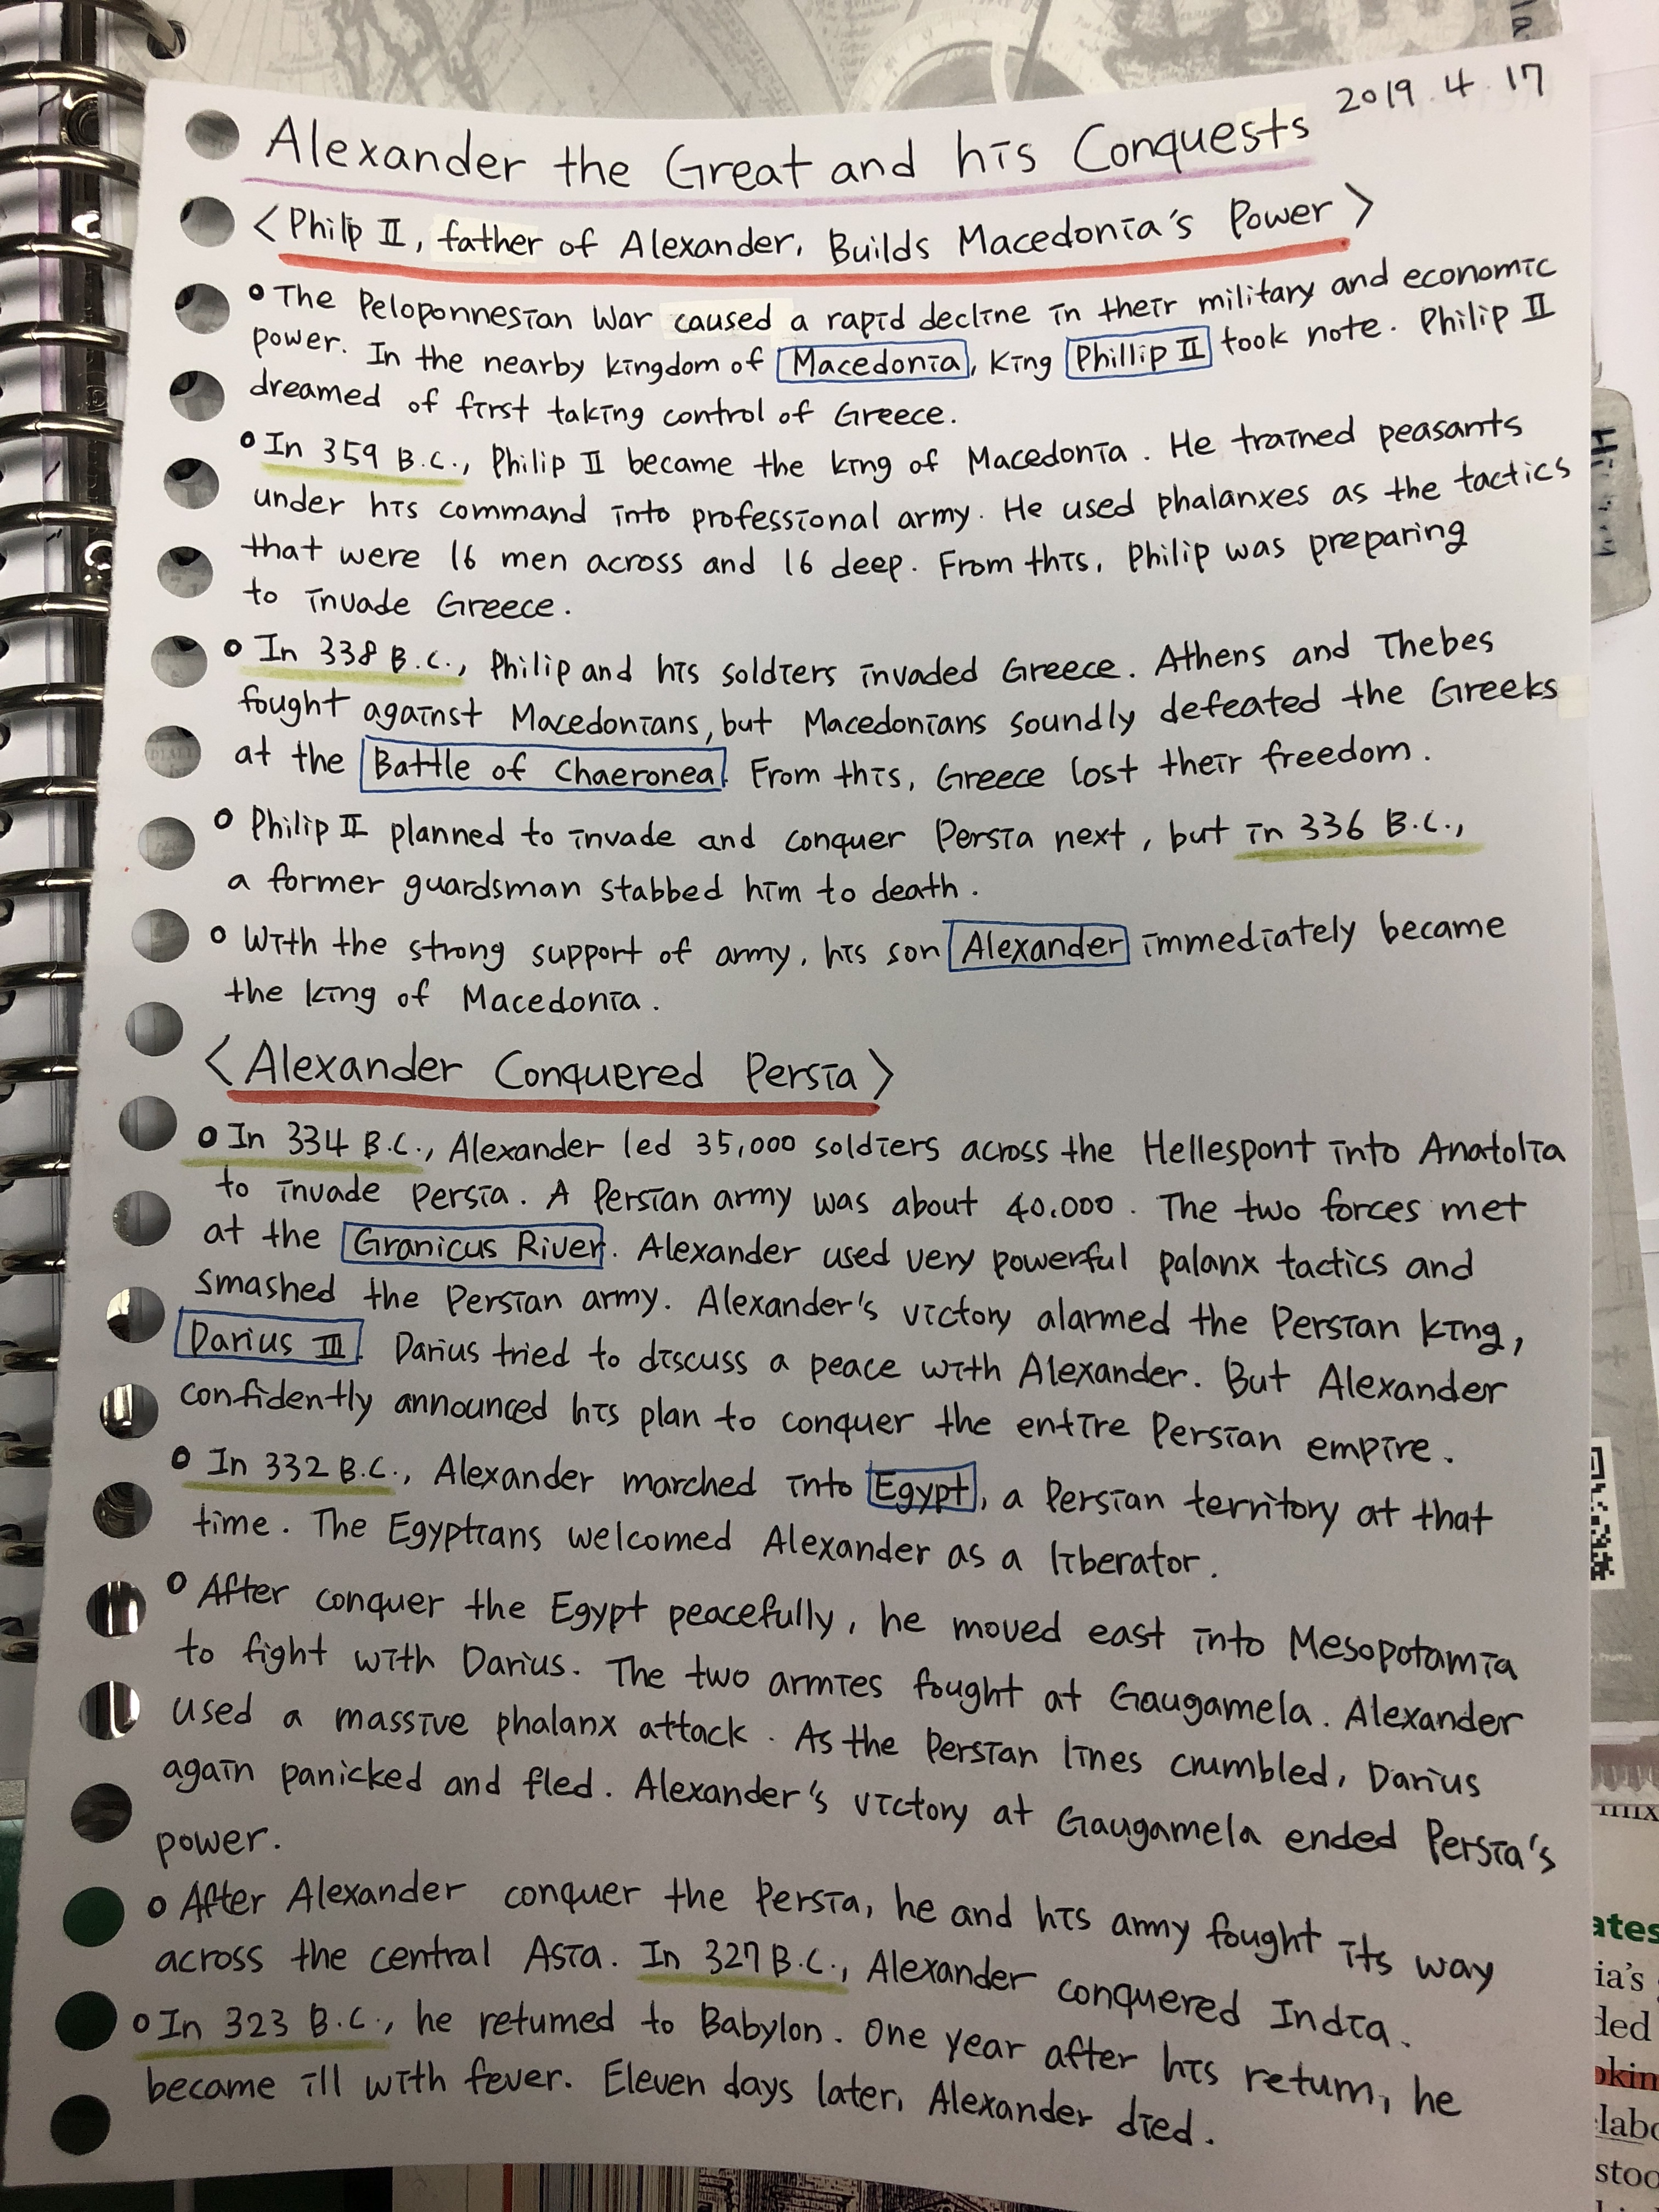 2019. 4. 17
Alexander the Great and his Conquests
<Philp II, father of Alexander, Builds Macedonia's Power>
o The Peloponnesian War caused a rapid decline in their military and economic
power. In the nearby kingdom of Macedonia, King Phillip II took note. Philip II
dreamed of first taking control of Greece.
o In 359 B.C., Philip II became the king of Macedonia. He trained peasants
under his command into professional army. He used phalanxes as the tactics
that were 16 men across and 16 deep. From this, Philip was preparing
to invade Greece.
o In 338 B.C., Philip and his soldiers invaded Greece. Athens and Thebes
fought against Macedonians, but Macedonians soundly defeated the Greeks
at the Battle of Chaeronea. From this, Greece lost their freedom.
o Philip II planned to invade and conquer Persia next, but in 336 B.C.,
a former guardsman stabbed him to death.
o With the strong support of army, his son Alexander immediately became
the king of Macedonia.
<Alexander Conquered Persia>
o In 334 B.C., Alexander led 35,000 soldiers across the Hellespont into Anatolia
to invade Persia. A Persian army was about 40.000. The two forces met
at the Granicus River. Alexander used very powerful palanx tactics and
smashed the Persian army. Alexander's victory alarmed the Persian king,
Darius III. Darius tried to discuss a peace with Alexander. But Alexander
confidently announced his plan to conquer the entire Persian empire.
o In 332 B.C., Alexander marched into Egypt, a Persian territory at that
time. The Egyptians welcomed Alexander as a liberator.
o After conquer the Egypt peacefully, he moved east into Mesopotamia
to fight with Darius. The two armies fought at Gaugamela. Alexander
used a massive phalanx attack. As the Persian lines crumbled, Darius
again panicked and fled. Alexander's victory at Gaugamela ended Persia's
power.
o After Alexander conquer the Persia, he and his army fought its way
across the central Asia. In 327 B.C., Alexander conquered India.
o In 323 B.C., he returned to Babylon. One year after his return, he
became ill with fever. Eleven days later, Alexander died.
ates
ia's
ded